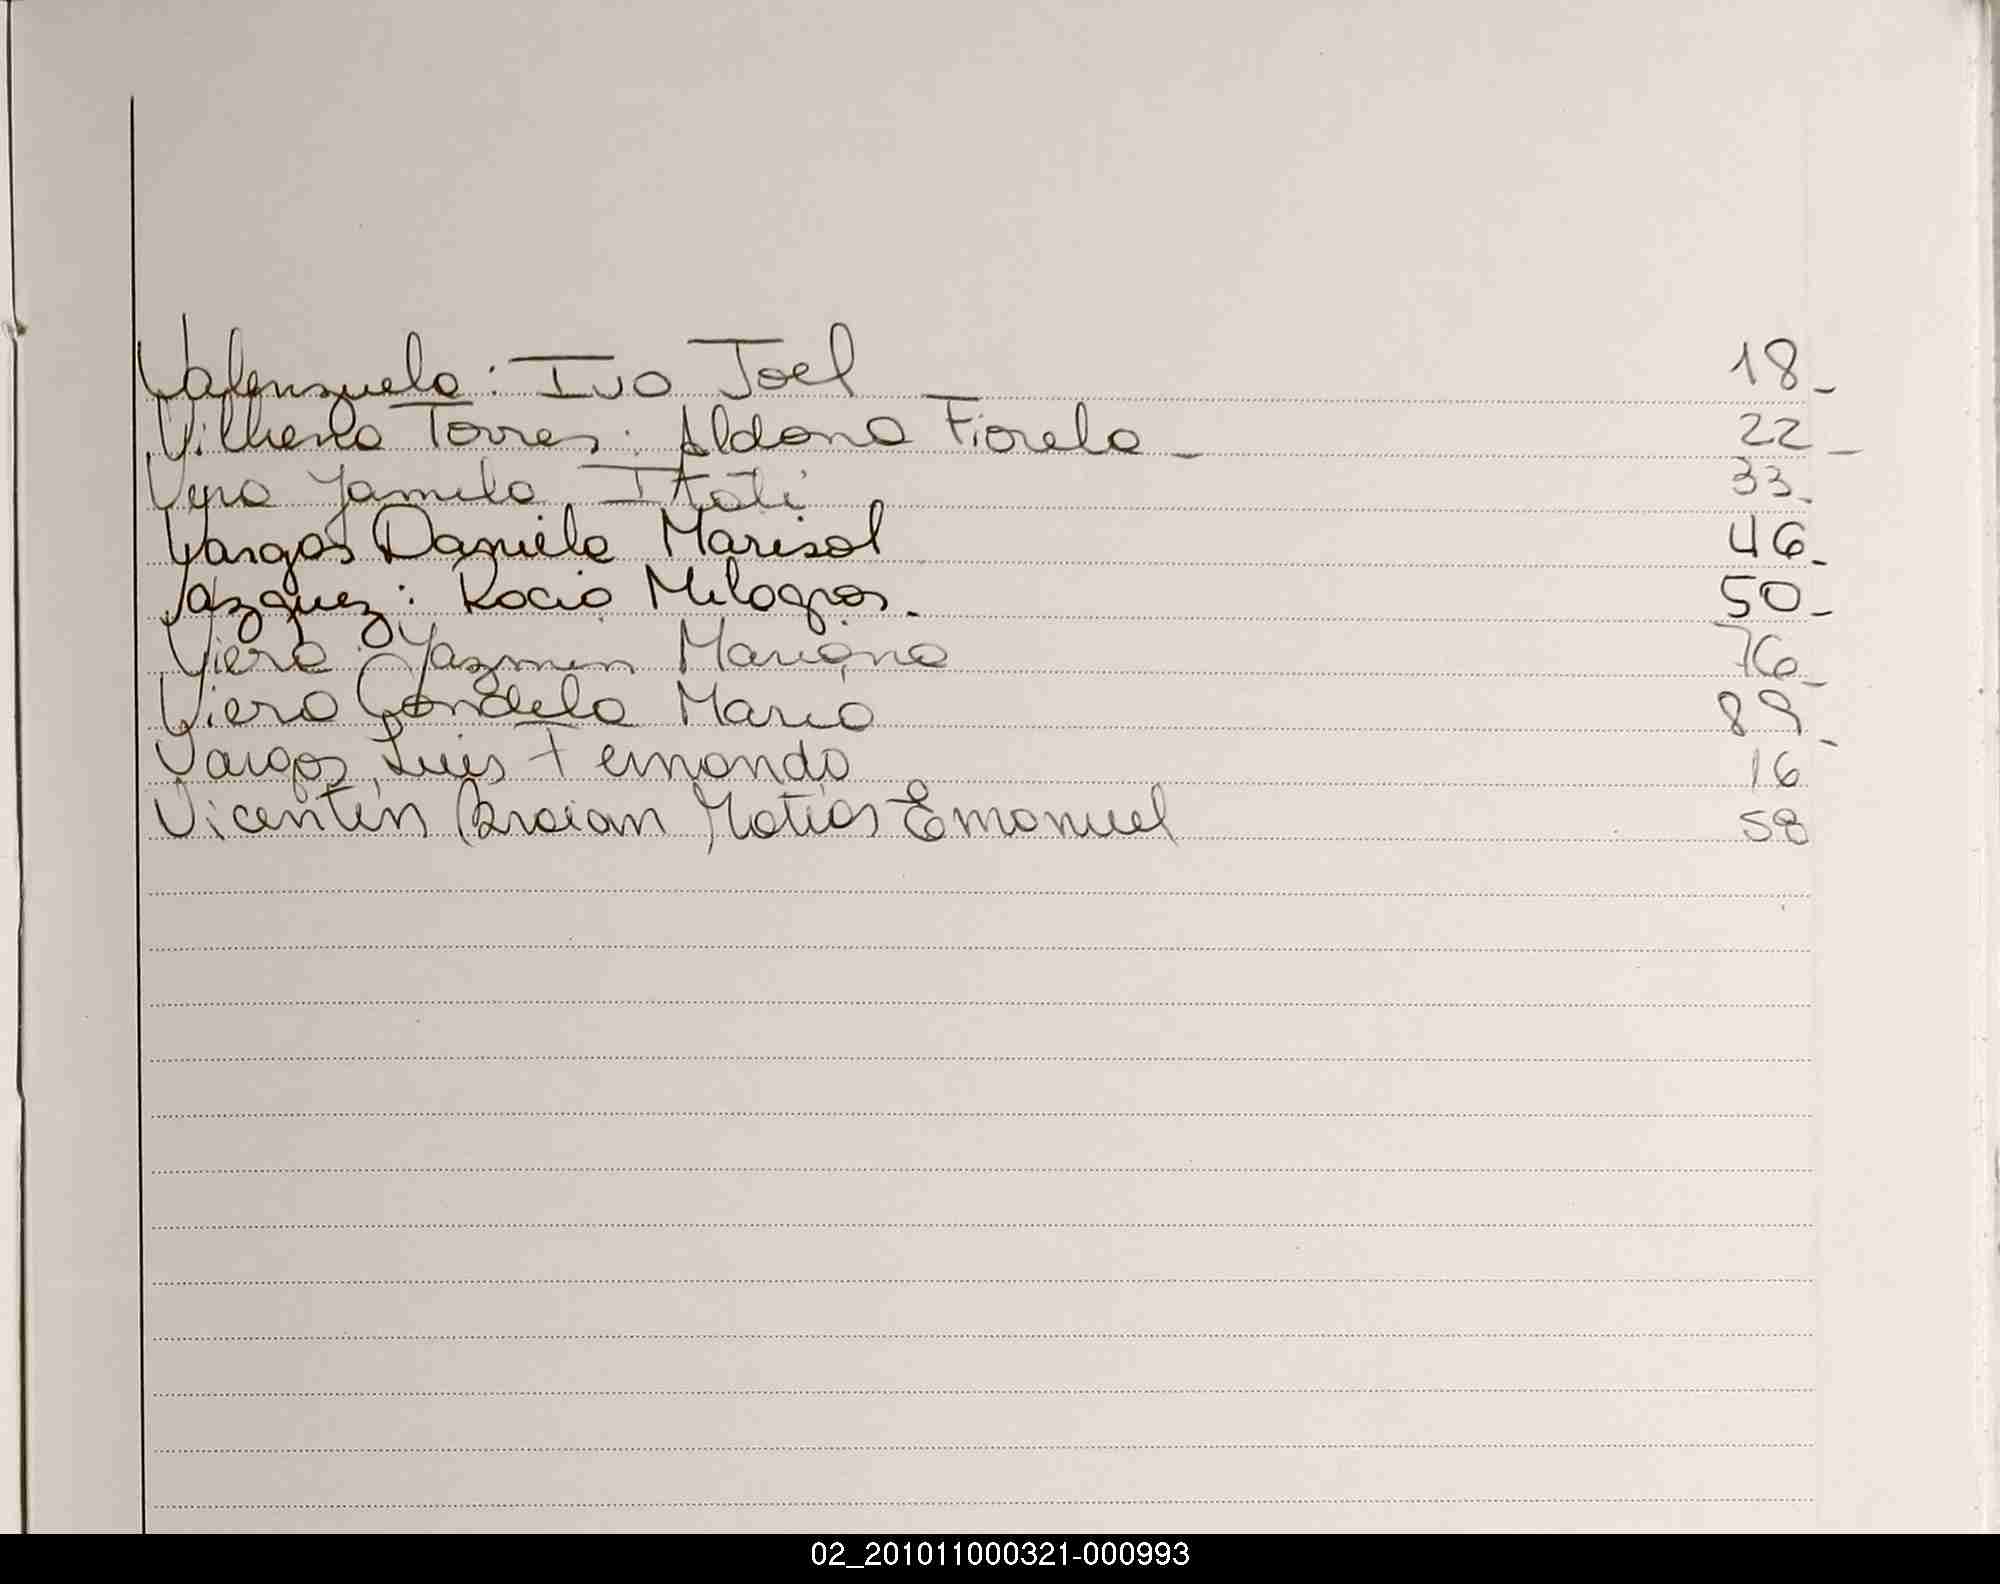 Valenzuela: Ivo Joel 18_
Vilhena Torres: Aldana Fiorela_ 22_
Vera Yamila Itatí 33_
Vargas Daniela Marisol 46_
Vazquez: Rocio Milagros. 50_
Viera: Yazmin Mariana 76_
Viera Candela Maria 89_
Vargas, Luis Fernando 16
Vicentín Braian Matías Emanuel 58
02_201011000321-000993